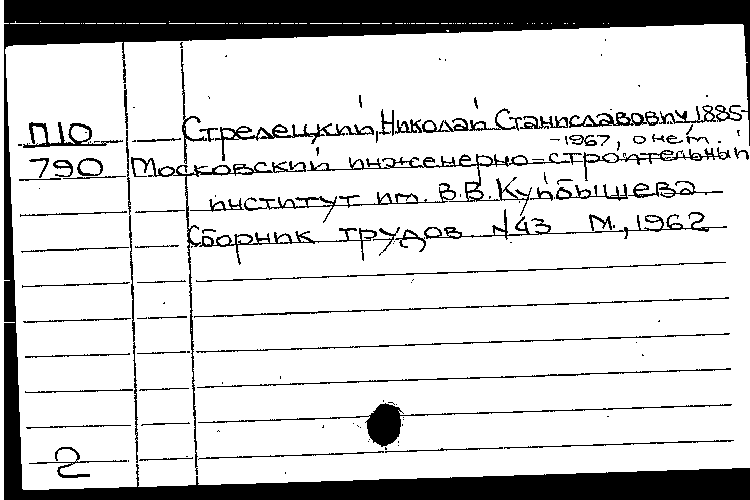 П10 Стрелецкий, Николай Станиславович, 1885-
-1967, о нем.
790 Московский инженерно-строительный
институт им. В.В. Куйбышева
Сборник трудов N43 М., 1962
2